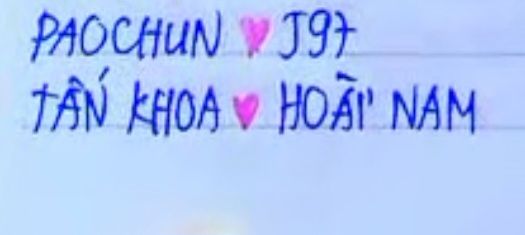 PAOCHUN 💗 J97
TẤN KHOA 💗 HOÀI NAM